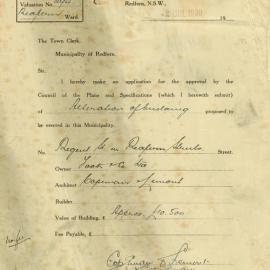 Valuation No.
Redfern Ward.
Redfern, N.S.W.,
19
The Town Clerk,
Municipality of Redfern.
Sir,
I hereby make an application for the approval by the
Council of the Plans and Specifications (which I herewith submit)
of Alteration of building proposed to
be erected in this Municipality.
No. Regent St. Redfern Street.
Owner Tooth & Co Ltd
Architect Copeman Lemont
Builder
Value of Building, £ Approx £10.500
Fee Payable, £
Copeman Lemont